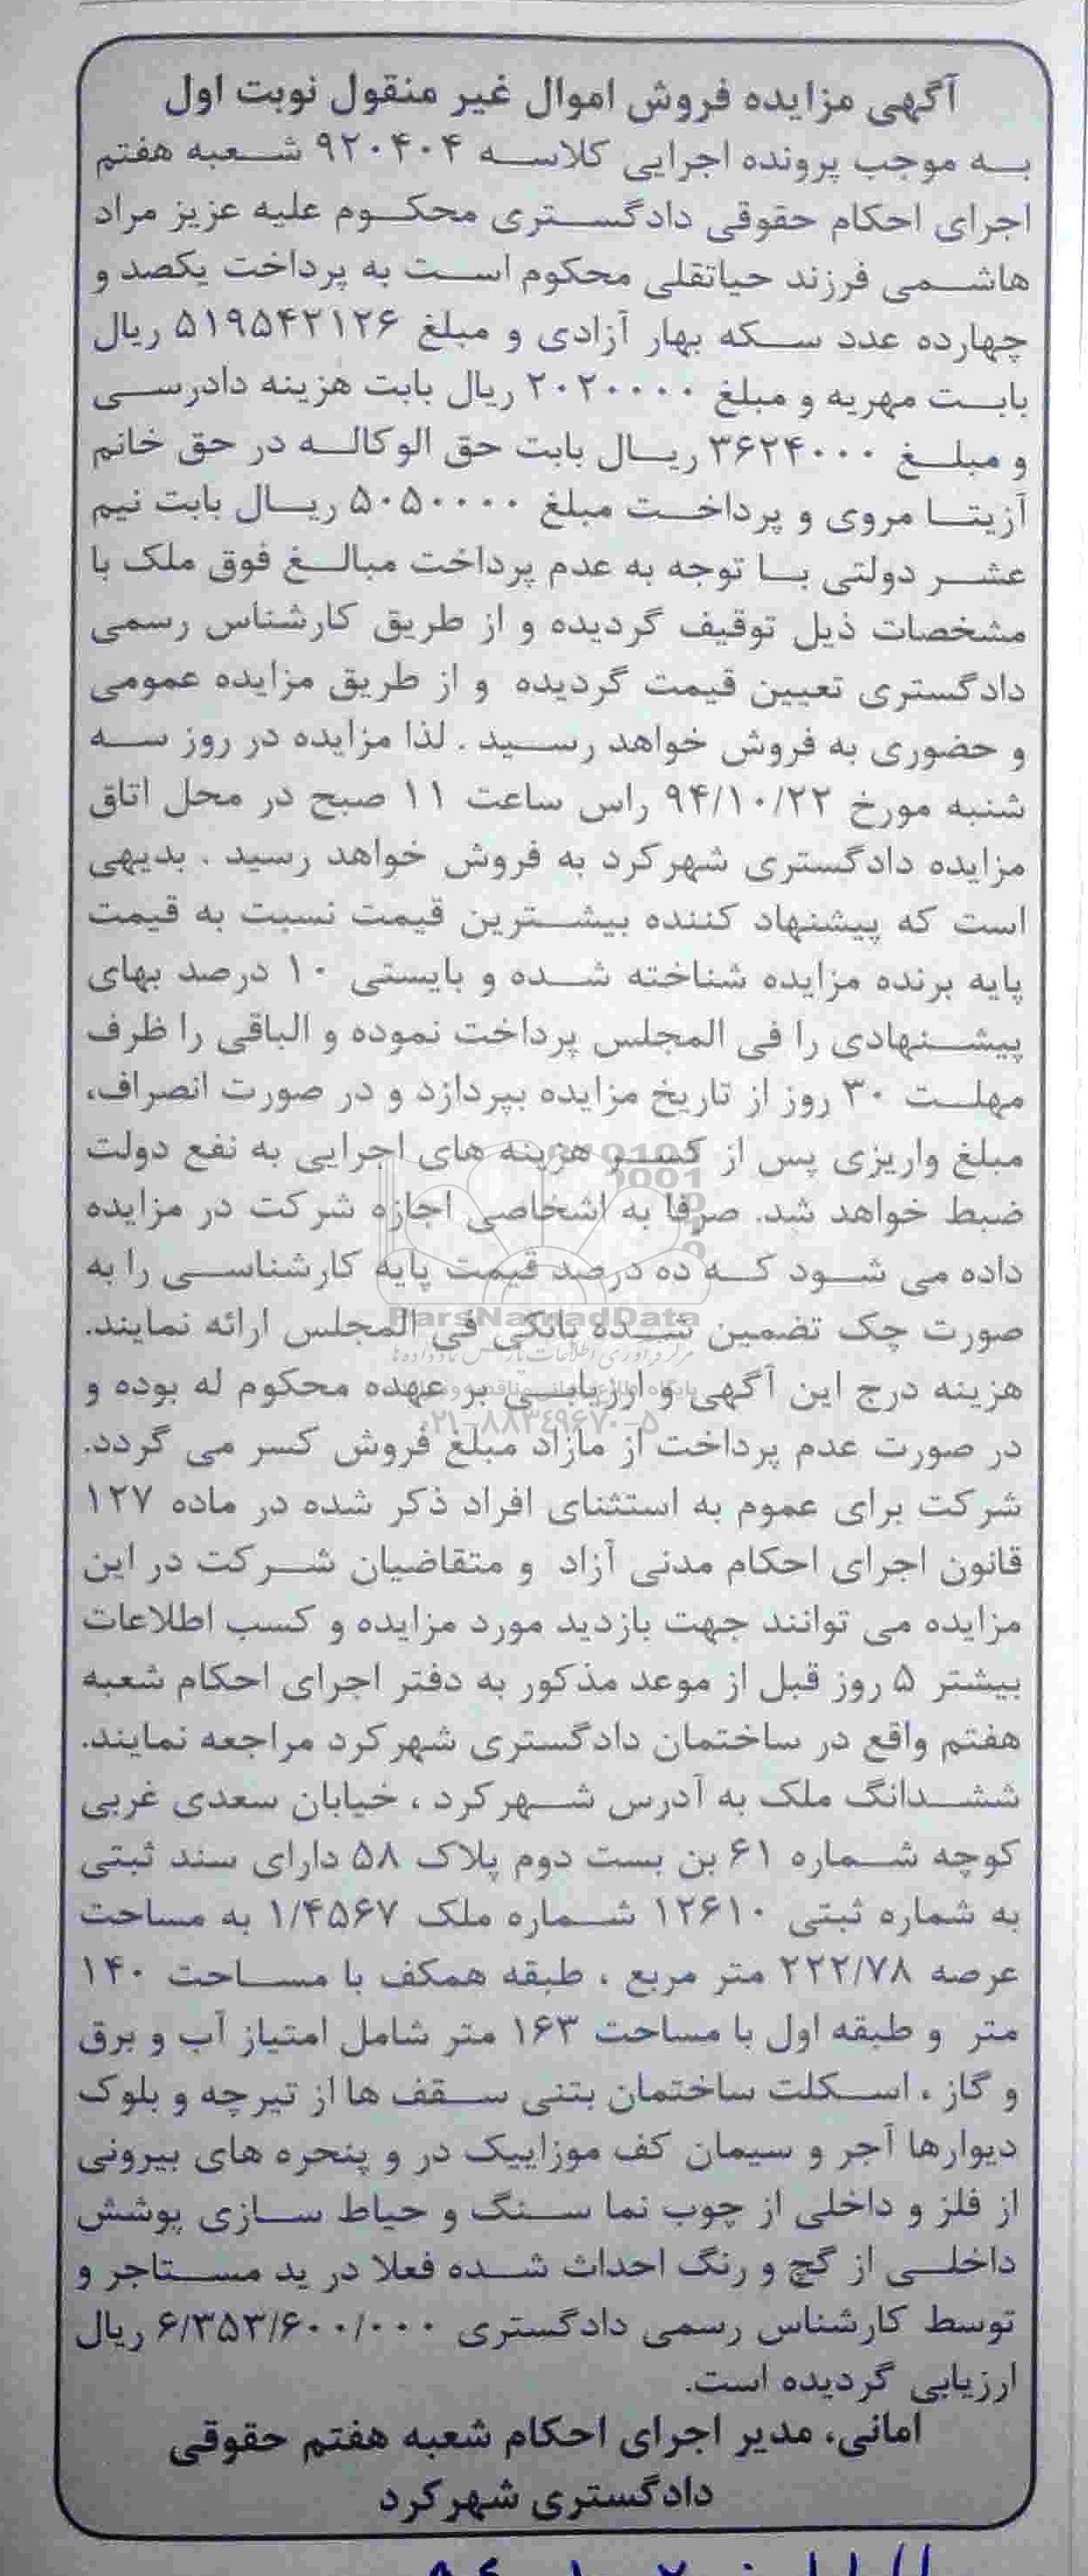 آگهی مزایده فروش اموال غیر منقول نوبت اول
به موجب پرونده اجرایی کلاسه ۹۲۰۴۰۴ شعبه هفتم
اجرای احکام حقوقی دادگستری محکوم علیه عزیز مراد
هاشمی فرزند حیاتقلی محکوم است به پرداخت یکصد و
چهارده عدد سکه بهار آزادی و مبلغ ۵۱۹۵۴۲۱۲۶ ریال
بابت مهریه و مبلغ ۲۰۲۰۰۰۰ ریال بابت هزینه دادرسی
و مبلغ ۳۶۲۴۰۰۰ ریال بابت حق الوکاله در حق خانم
آزیتا مروی و پرداخت مبلغ ۵۰۵۰۰۰۰ ریال بابت نیم
عشر دولتی با توجه به عدم پرداخت مبالغ فوق ملک با
مشخصات ذیل توقیف گردیده و از طریق کارشناس رسمی
دادگستری تعیین قیمت گردیده و از طریق مزایده عمومی
و حضوری به فروش خواهد رسید . لذا مزایده در روز سه
شنبه مورخ ۹۴/۱۰/۲۲ راس ساعت ۱۱ صبح در محل اتاق
مزایده دادگستری شهرکرد به فروش خواهد رسید . بدیهی
است که پیشنهاد کننده بیشترین قیمت نسبت به قیمت
پایه برنده مزایده شناخته شده و بایستی ۱۰ درصد بهای
پیشنهادی را فی المجلس پرداخت نموده و الباقی را ظرف
مهلت ۳۰ روز از تاریخ مزایده بپردازد و در صورت انصراف،
مبلغ واریزی پس از کسر هزینه های اجرایی به نفع دولت
ضبط خواهد شد. صرفا به اشخاصی اجازه شرکت در مزایده
داده می شود که ده درصد قیمت پایه کارشناسی را به
ParsNamadData
صورت چک تضمین شده بانکی فی المجلس ارائه نمایند.
هزینه درج این آگهی و ارزیابی بر عهده محکوم له بوده و
۰۲۱-۸۸۳۴۹۶۷۰-۵
در صورت عدم پرداخت از مازاد مبلغ فروش کسر می گردد.
شرکت برای عموم به استثنای افراد ذکر شده در ماده ۱۲۷
قانون اجرای احکام مدنی آزاد و متقاضیان شرکت در این
مزایده می توانند جهت بازدید مورد مزایده و کسب اطلاعات
بیشتر ۵ روز قبل از موعد مذکور به دفتر اجرای احکام شعبه
هفتم واقع در ساختمان دادگستری شهرکرد مراجعه نمایند.
ششدانگ ملک به آدرس شهرکرد ، خیابان سعدی غربی
کوچه شماره ۶۱ بن بست دوم پلاک ۵۸ دارای سند ثبتی
به شماره ثبتی ۱۲۶۱۰ شماره ملک ۱/۴۵۶۷ به مساحت
عرصه ۲۲۲/۷۸ متر مربع ، طبقه همکف با مساحت ۱۴۰
متر و طبقه اول با مساحت ۱۶۳ متر شامل امتیاز آب و برق
و گاز ، اسکلت ساختمان بتنی سقف ها از تیرچه و بلوک
دیوارها آجر و سیمان کف موزاییک در و پنجره های بیرونی
از فلز و داخلی از چوب نما سنگ و حیاط سازی پوشش
داخلی از گچ و رنگ احداث شده فعلا در ید مستاجر و
توسط کارشناس رسمی دادگستری ۶/۳۵۳/۶۰۰/۰۰۰ ریال
ارزیابی گردیده است.
امانی، مدیر اجرای احکام شعبه هفتم حقوقی
دادگستری شهرکرد